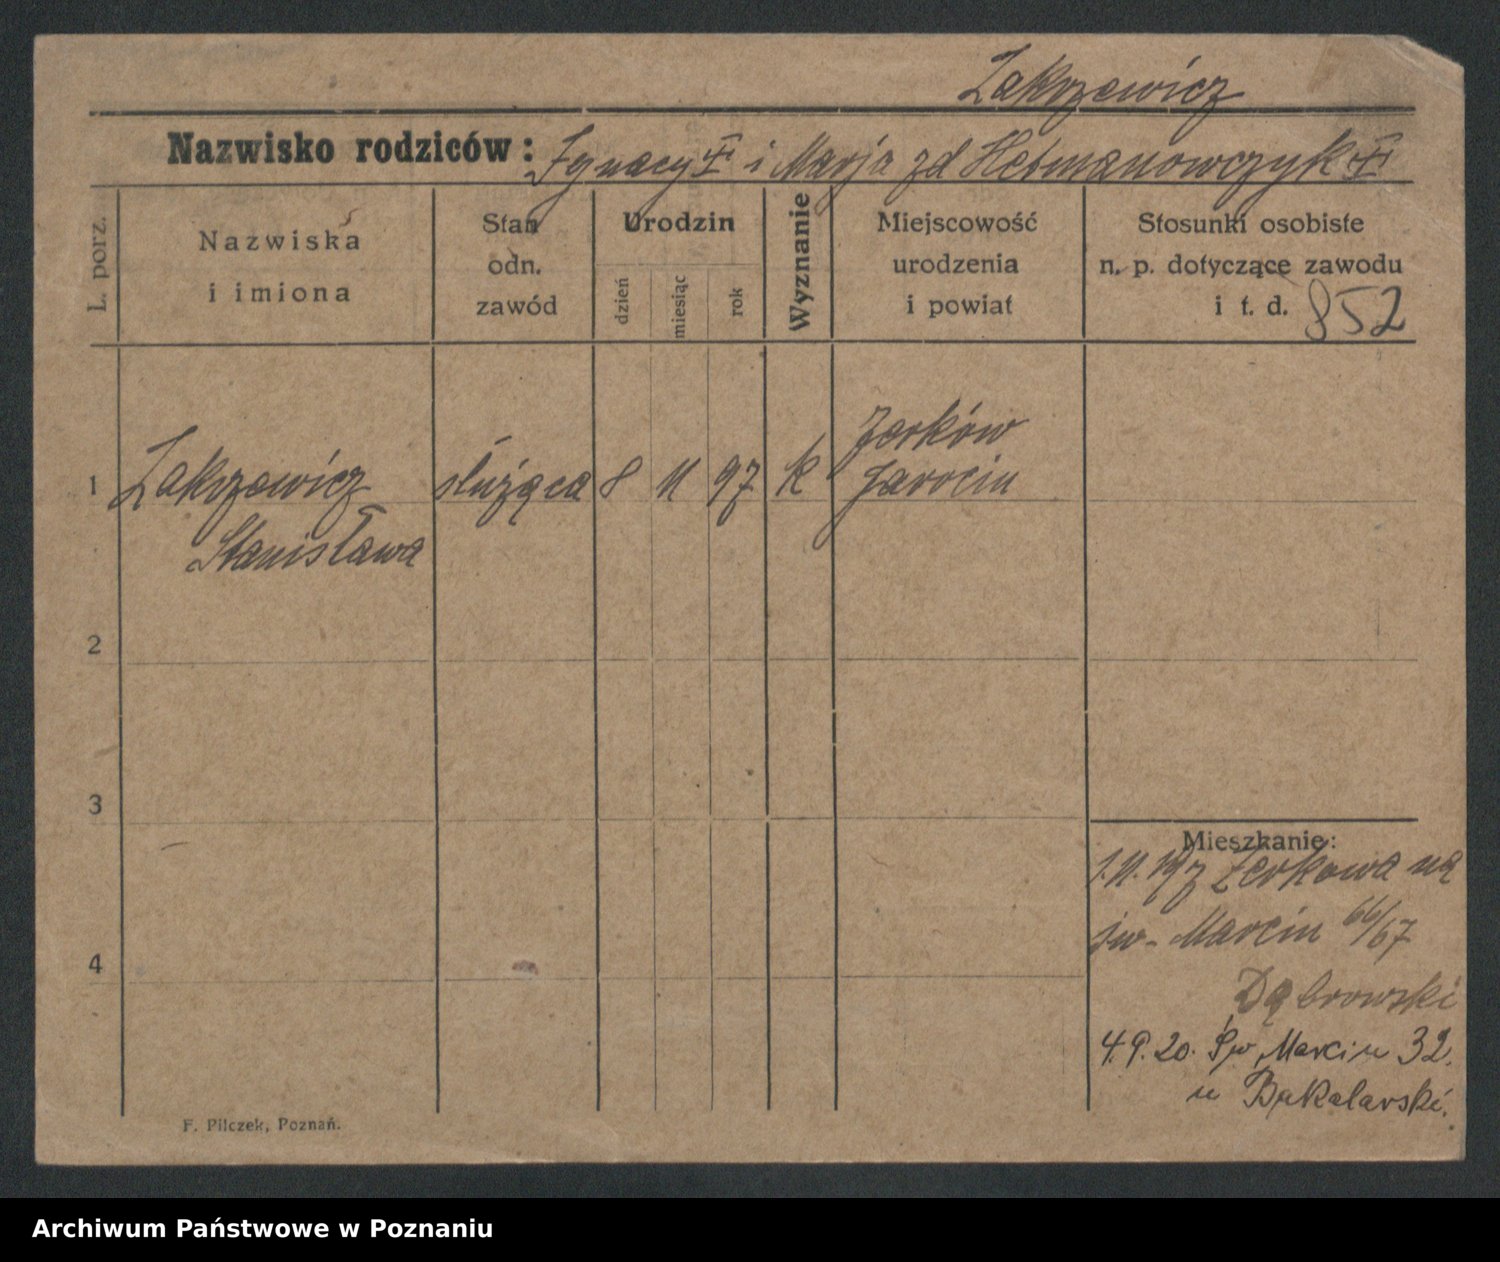 Zakrzewicz
Nazwisko rodziców: Ignacy † i Marja zd Hetmanowczyk †
L. porz.
Nazwiska
i imiona
Stan
odn.
zawód
Urodzin
dzień
miesiąc
rok
Wyznanie
Miejscowość
urodzenia
i powiat
Stosunki osobiste
n. p. dotyczące zawodu
i t. d. 852
1 Zakrzewicz służąca 8 11 97 k Żerków
Stanisława Jarocin
2
3
4
Mieszkanie:
1.11.19 z Żerkowa na
św. Marcin 66/67
Dąbrowski
4.9.20. Św. Marcin 32.
u Bąkalarski.
F. Pilczek, Poznań.
Archiwum Państwowe w Poznaniu